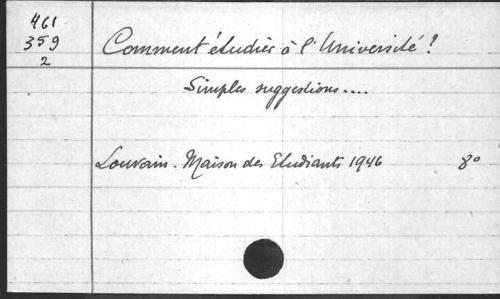 461
359
2
Comment étudier à l'Université?
Simples suggestions....
Louvain. Maison des Etudiants 1946 8°